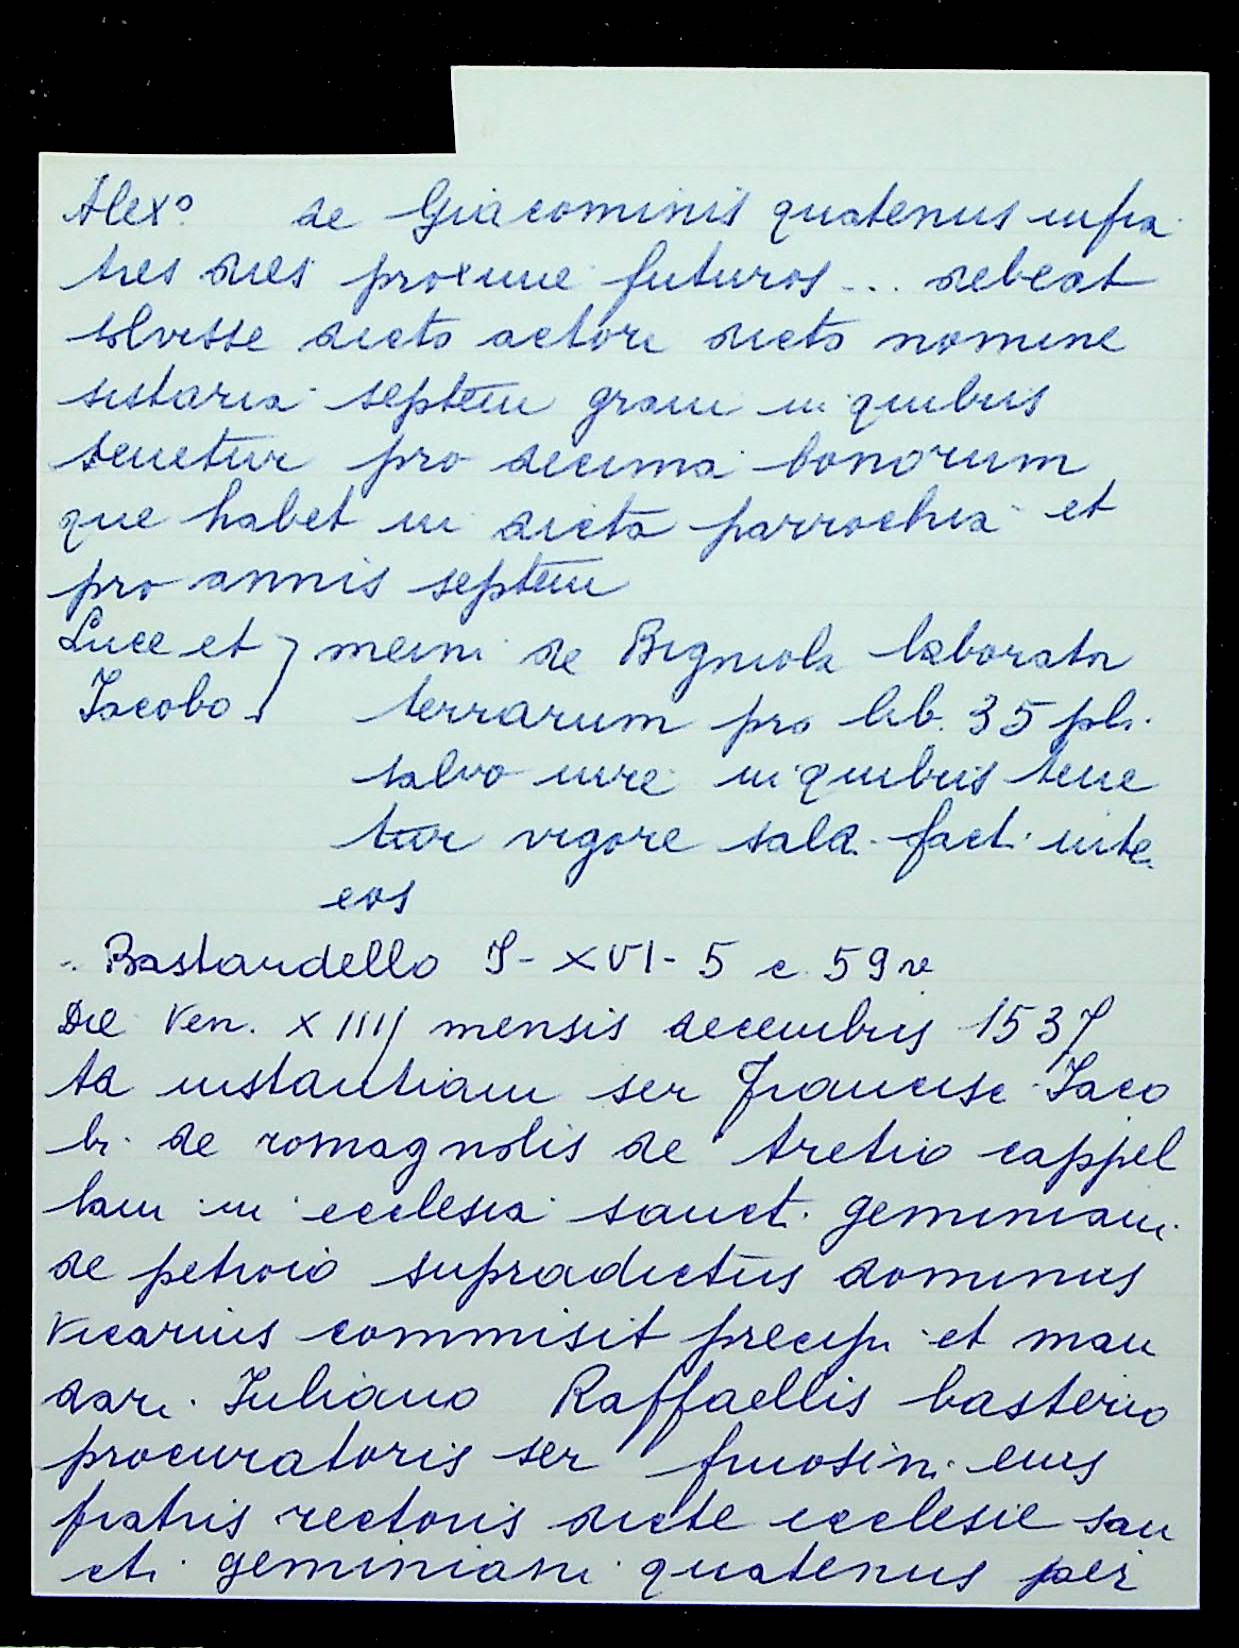 Alex° de Giacominis quatenus infra
tres dies proxime futuros ... debeat
solvisse dicto actori dicto nomine
sistaria septem grani in quibus
tenetur pro decima bonorum
que habet in dicta parrochia et
pro annis septem
Luce et } meini de Bigniola laborator
Iacobo } terrarum pro lib. 35 pli.
salvo iure in quibus tene
tur vigore sald. fact. inte.
eos
Bastardello J-XVI-5 c. 59 v
Die Ven. XIIIJ mensis decembris 1537
Ad instantiam ser Francisc Iaco
bi de romagnolis de Aretio cappel
lani in ecclesia sanct. geminiani
de petroio supradictus dominus
Vicarius commisit precipi et man
dari Iuliano Raffaellis basterio
procuratoris ser fruosini eius
fratris rectoris dicte ecclesie san
cti geminiani quatenus per